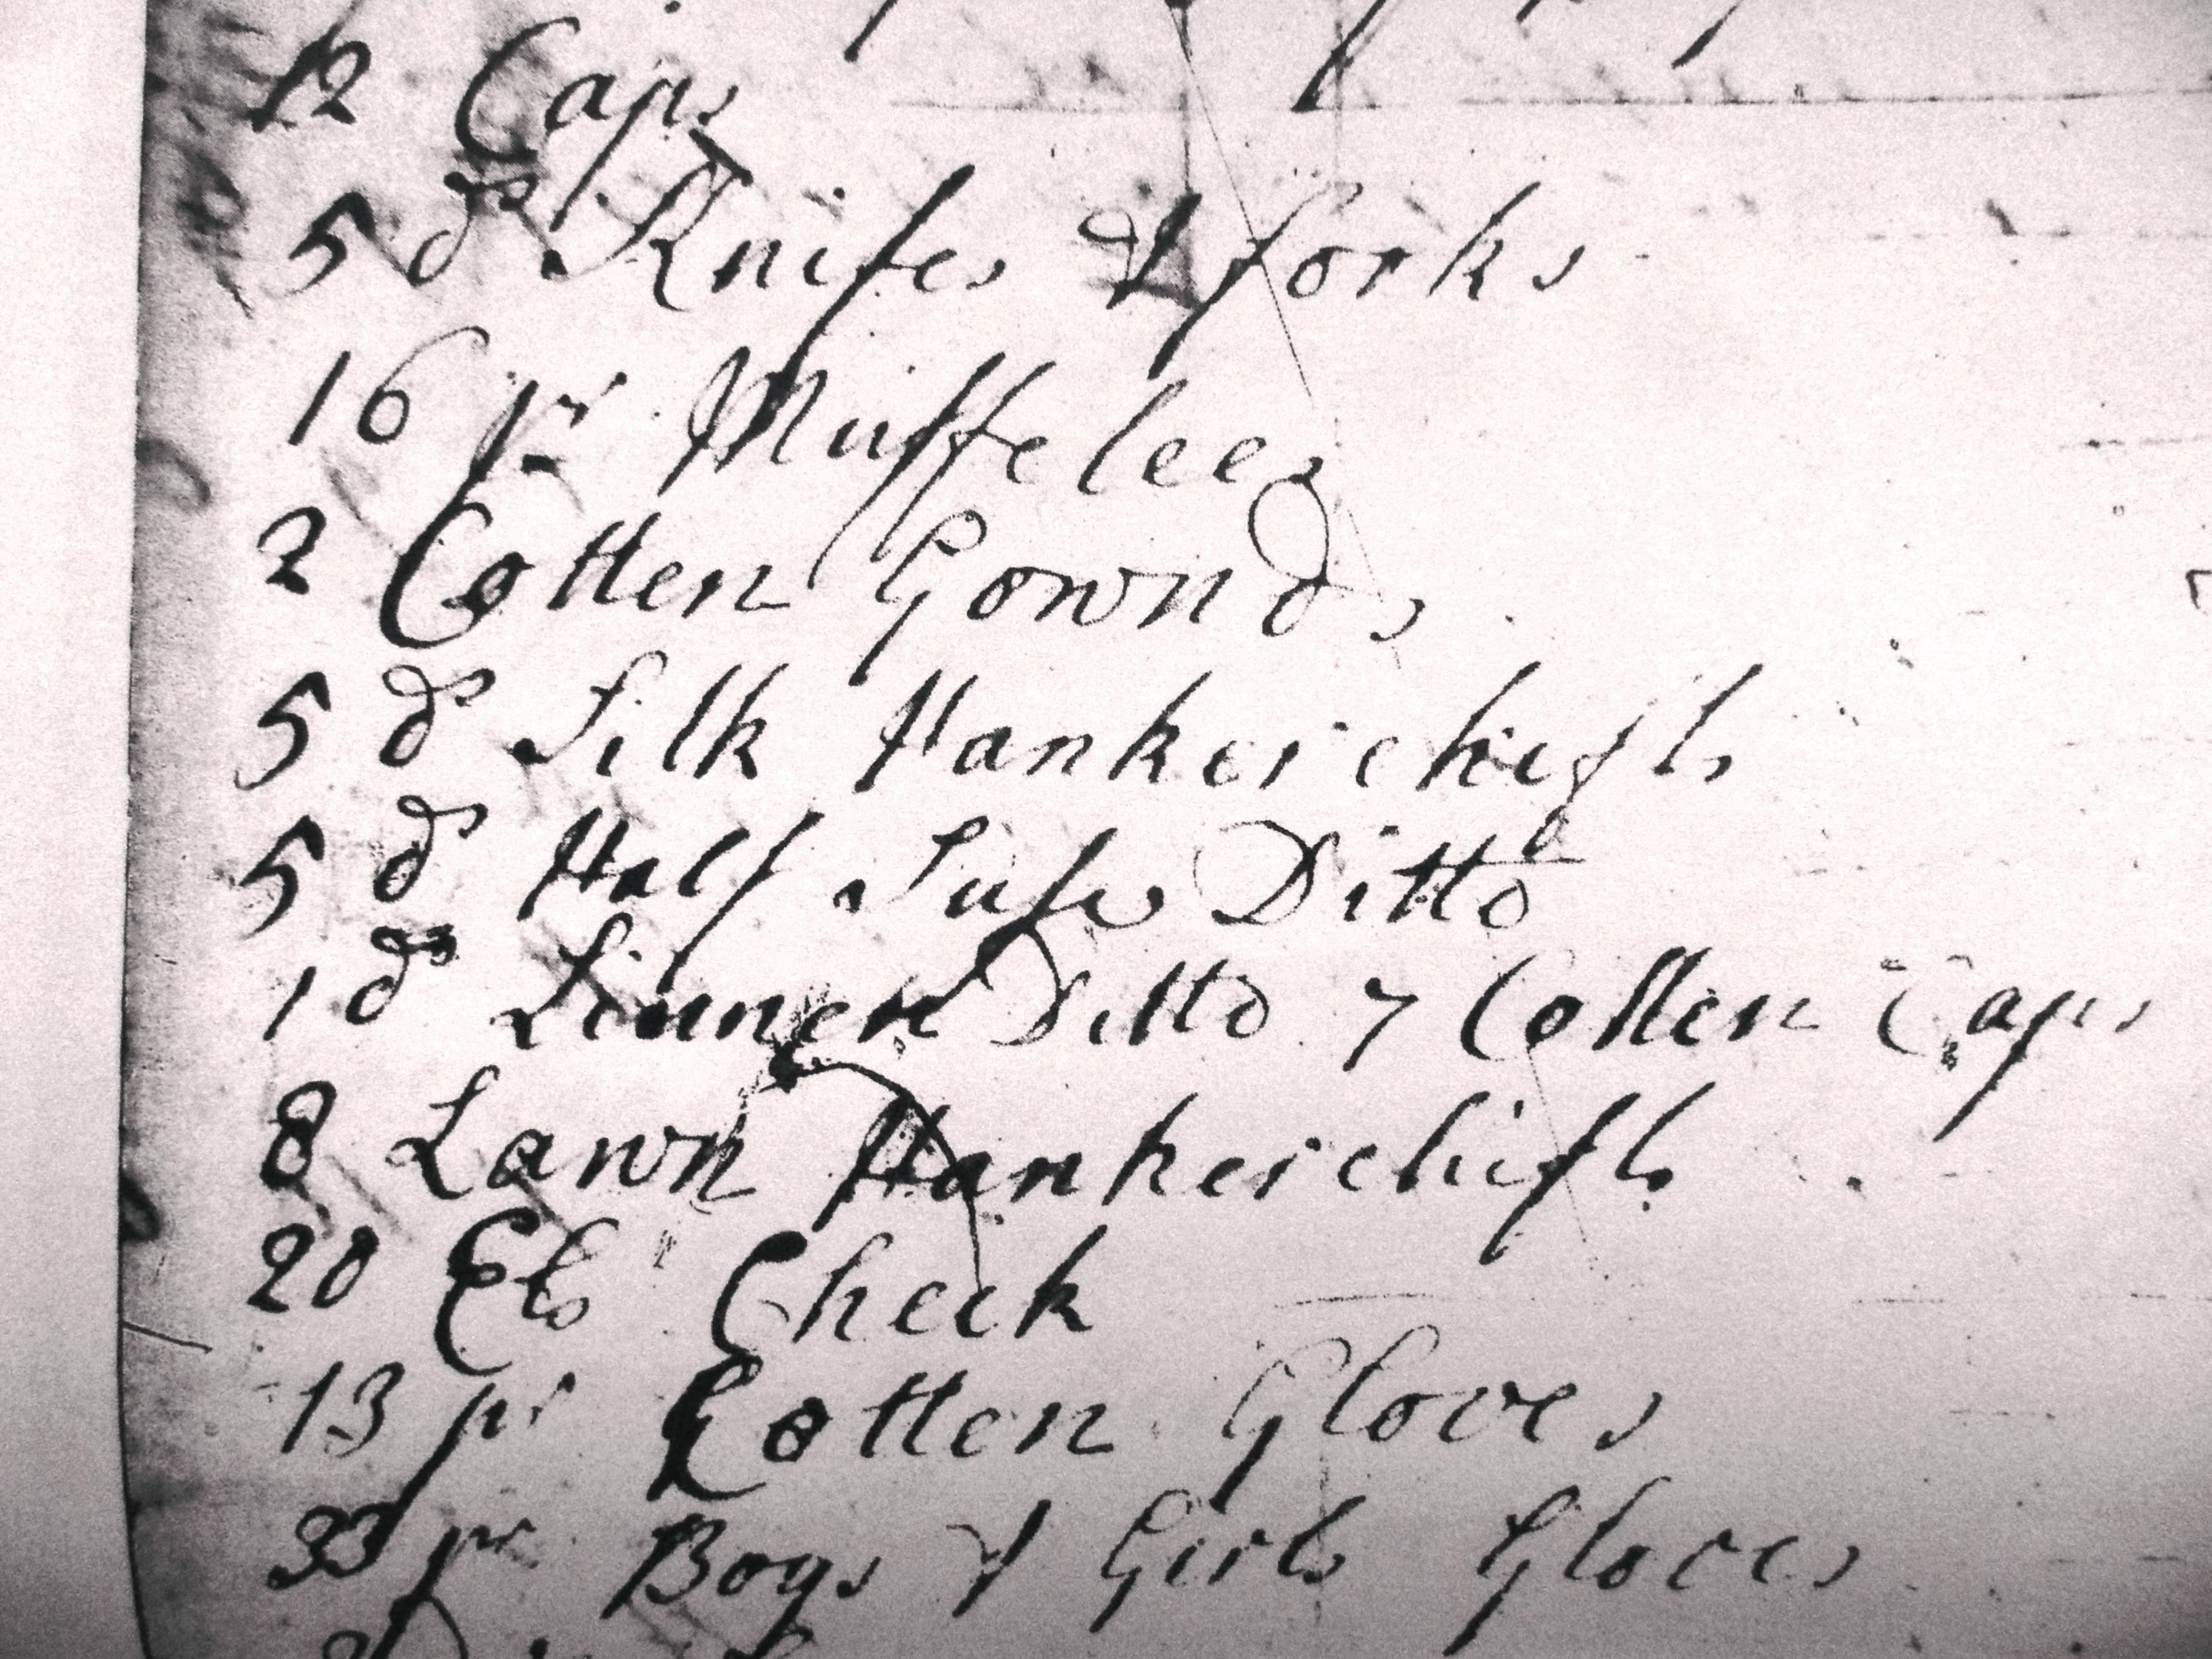 12 Caps
5 ds Knifes & forks
16 pr Muffelees
2 Cotten Gownds
5 ds Silk Hankerchifs
5 ds Half Ditto
1 ds Linnen Ditto 7 Cotten Caps
8 Lawn Hankerchifs
20 Els Check
13 pr Cotten Gloves
33 pr Boys & Girls Gloves